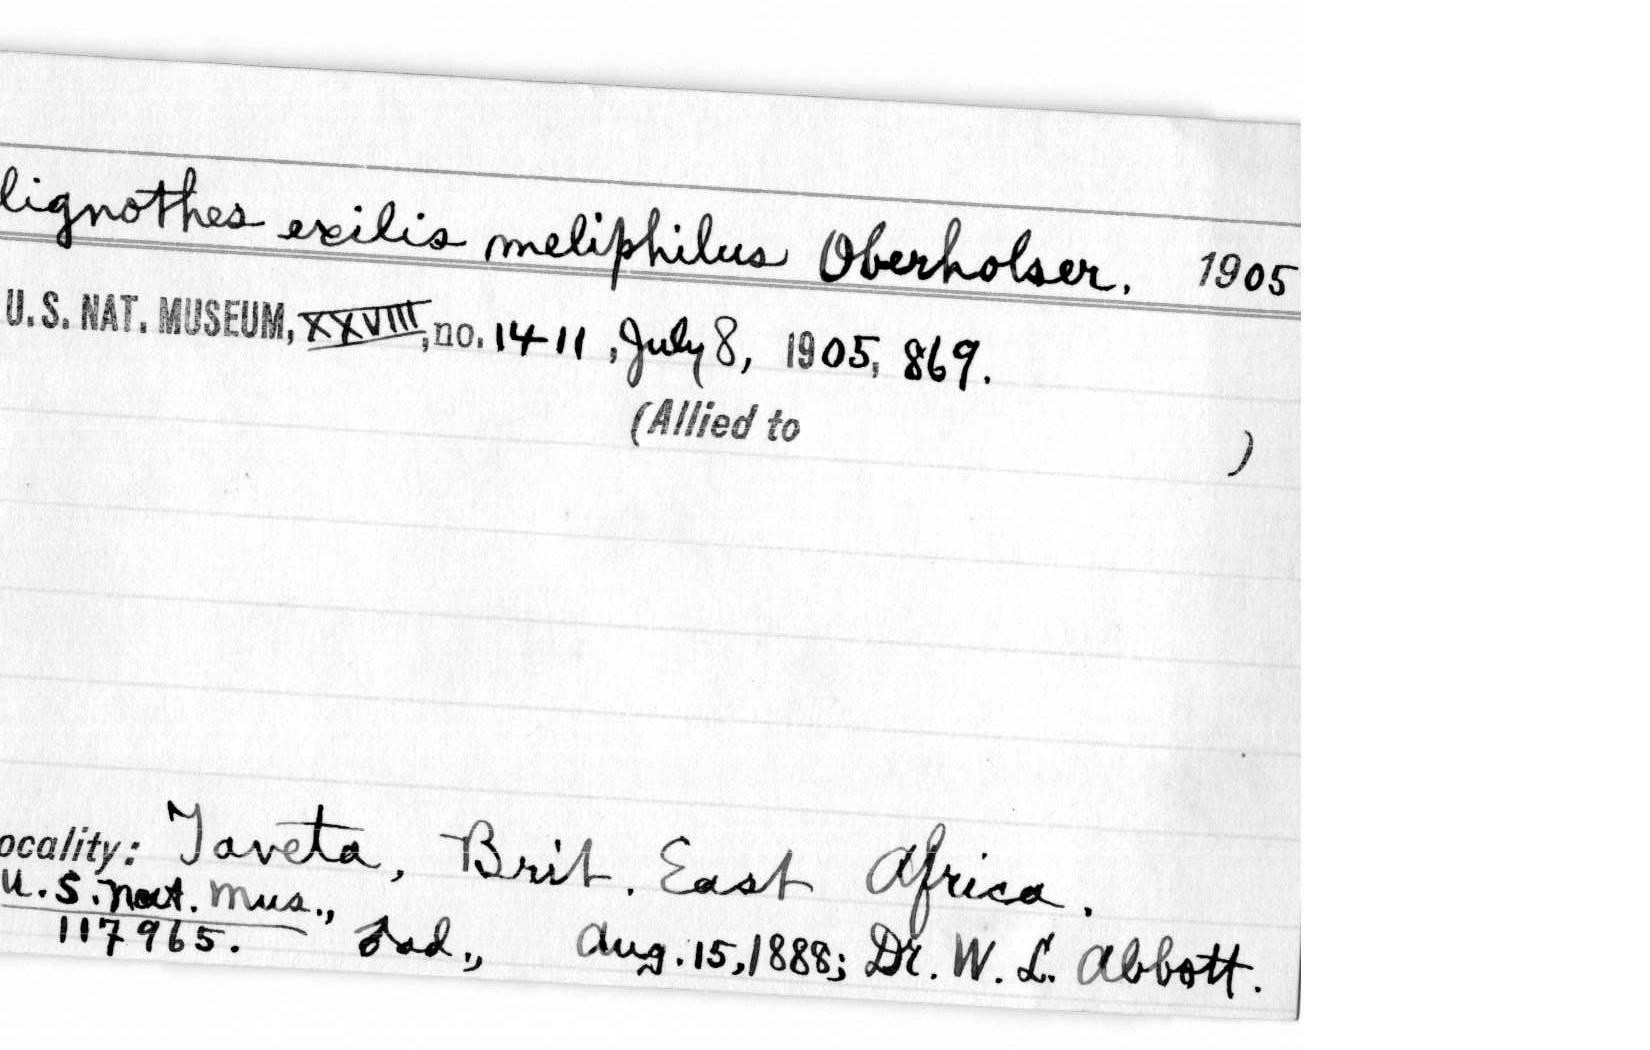 lignothes exilis meliphilus Oberholser. 1905
U.S. NAT. MUSEUM, XXVIII, no. 1411, July 8, 1905, 869.
(Allied to )
ocality: Taveta, Brit. East Africa.
U.S. Nat. Mus.,
117965. ad., Aug. 15, 1888; Dr. W. L. Abbott.